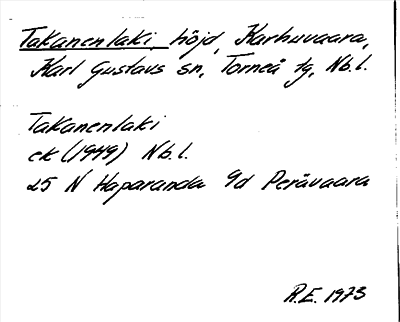 Takanenlaki, höjd, Karhuvaara,
Karl Gustavs sn, Torneå tg, Nb.l.
Takanenlaki
ek (1949) Nb.l.
25 N Haparanda 9d Perävaara
R.E. 1973